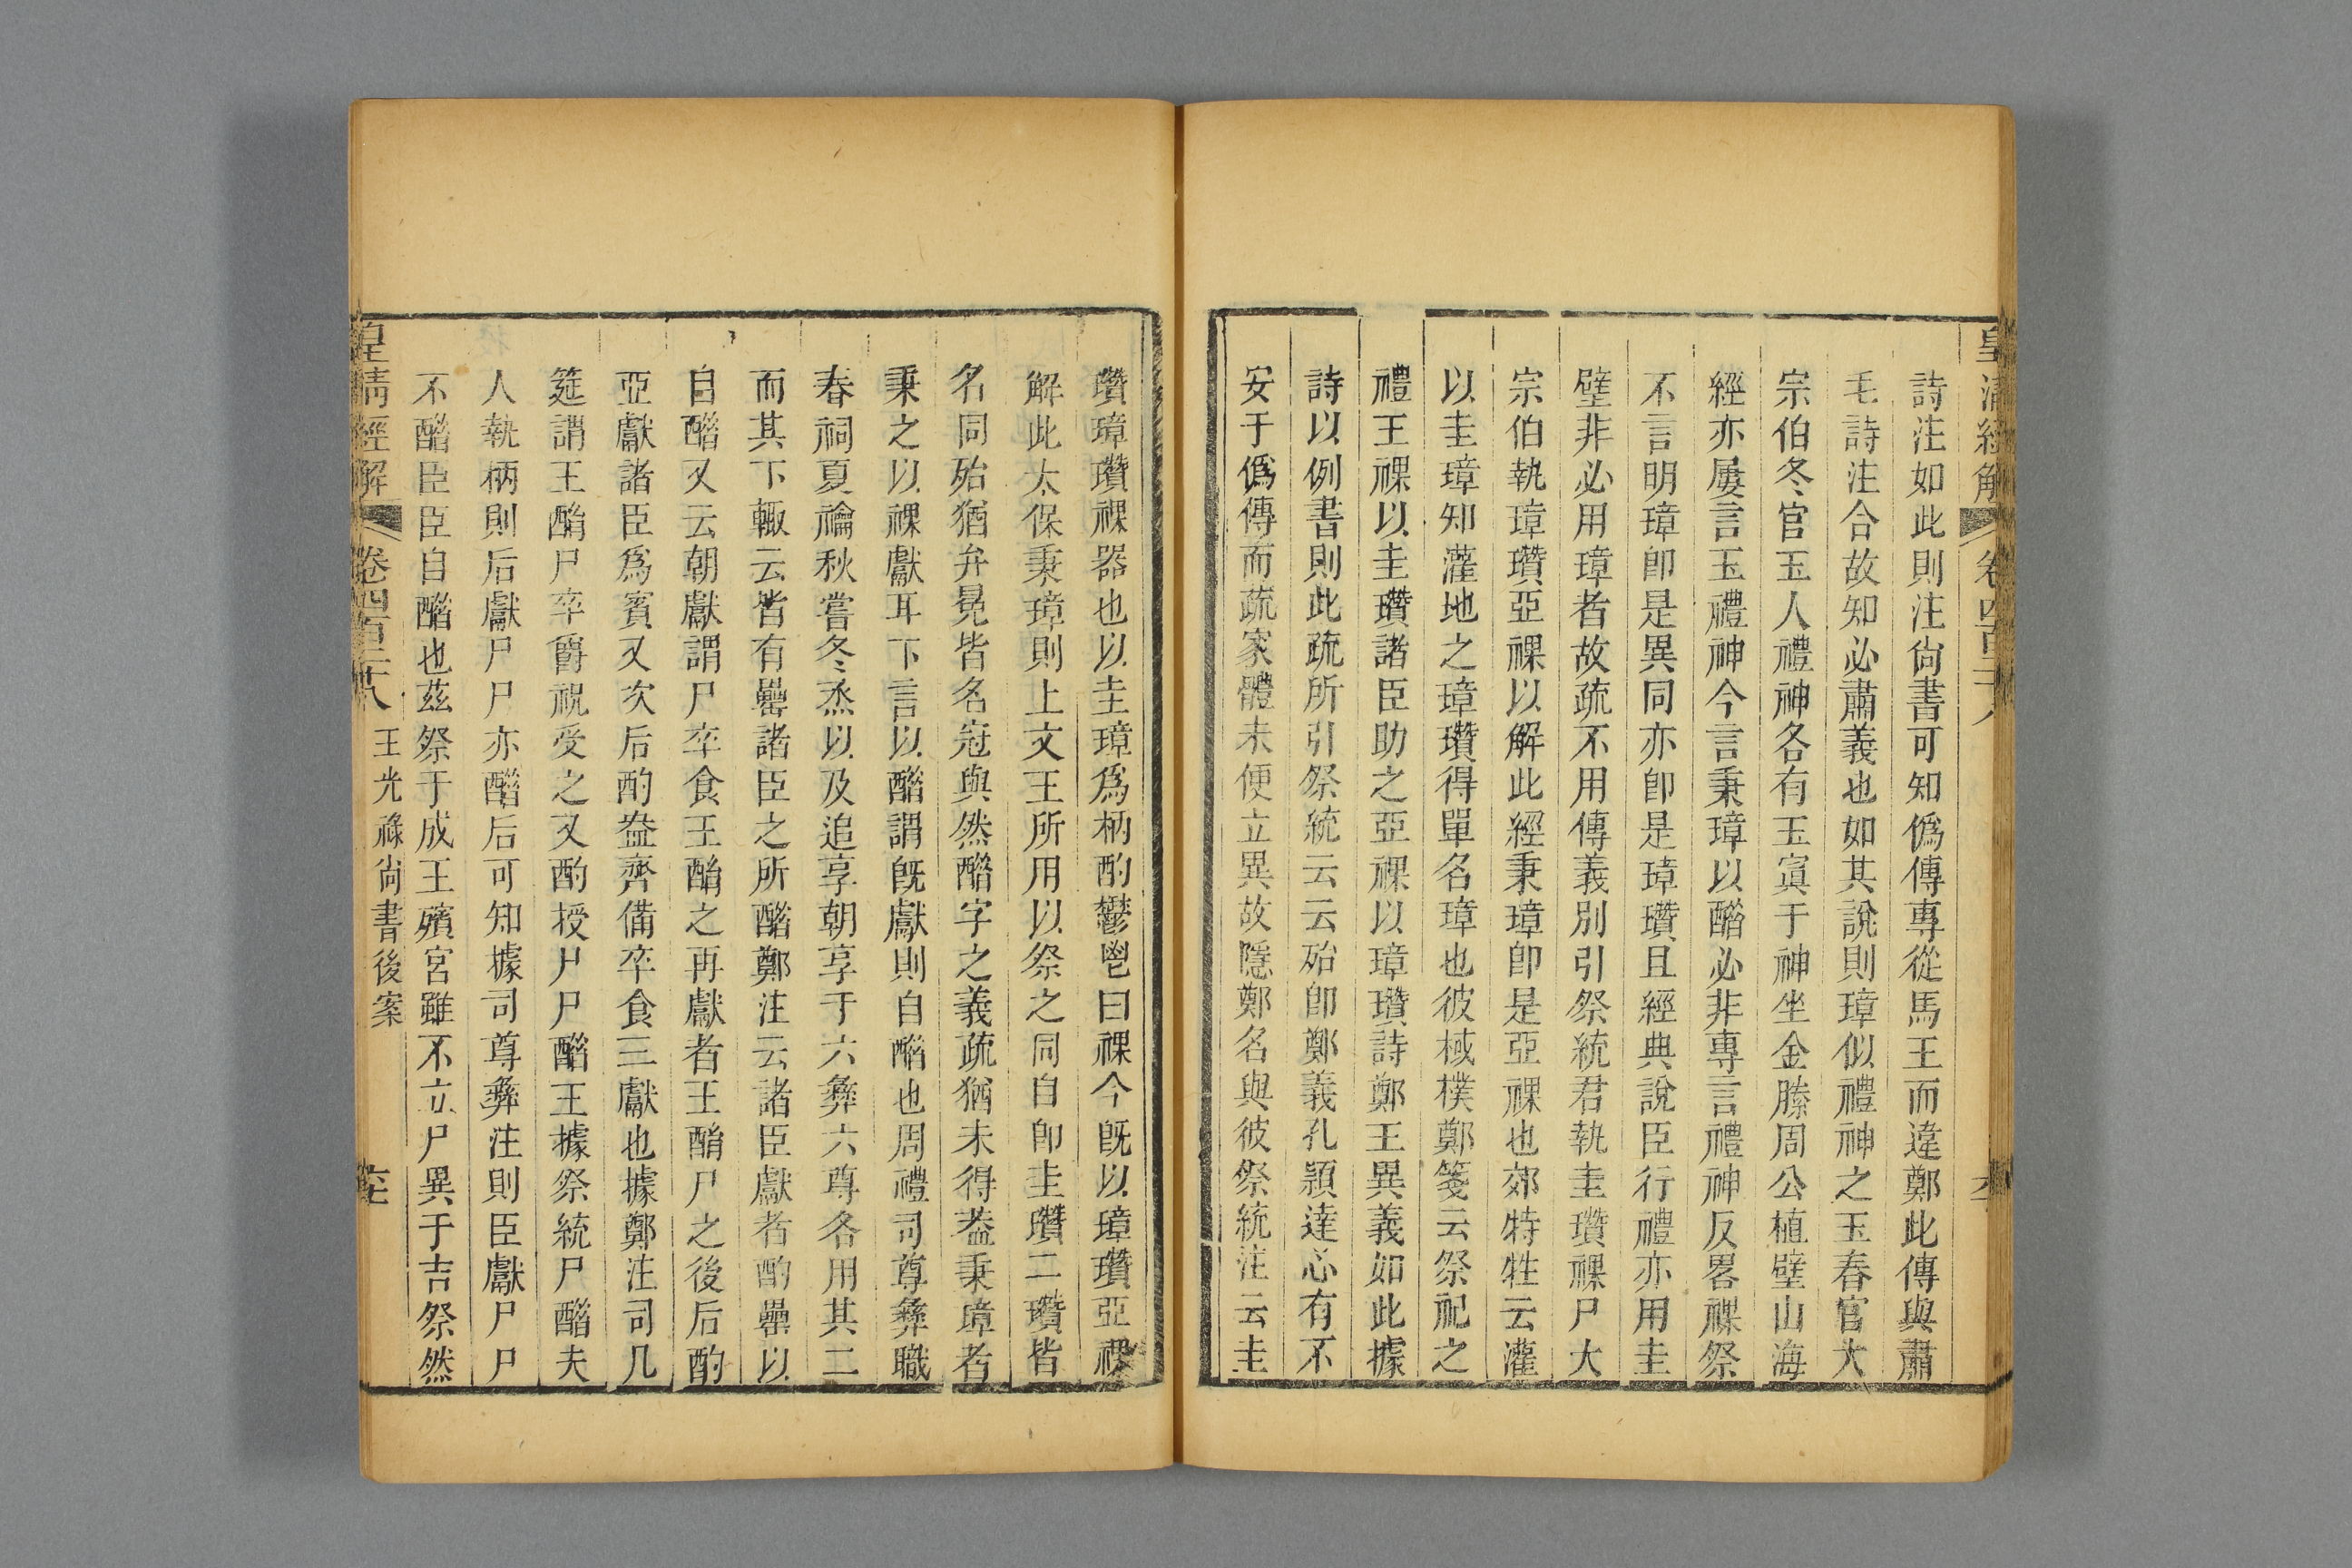 皇清經解 卷四百二十八
詩注如此則注尙書可知僞傳專從馬王而違鄭此傳與肅
毛詩注合故知必肅義也如其說則璋似禮神之玉春官大
宗伯冬官玉人禮神各有玉寘于神坐金縢周公植璧山海
經亦屢言玉禮神今言秉璋以酢必非專言禮神反畧祼祭
不言明璋卽是異同亦卽是璋瓚且經典說臣行禮亦用圭
璧非必用璋者故疏不用傳義別引祭統君執圭瓚祼尸大
宗伯執璋瓚亞祼以解此經秉璋卽是亞祼也郊特牲云灌
以圭璋知灌地之璋瓚得單名璋也彼棫樸鄭箋云祭祀之
禮王祼以圭瓚諸臣助之亞祼以璋瓚詩鄭王異義如此據
詩以例書則此疏所引祭統云云殆卽鄭義孔穎達忩有不
安于僞傳而疏家體未便立異故隱鄭名與彼祭統注云圭
瓚璋瓚祼器也以圭璋爲柄酌鬱鬯曰祼今旣以璋瓚亞祼
解此太保秉璋則上文王所用以祭之同自卽圭瓚二瓚皆
名同殆猶弁晃皆名冠與然醋字之義疏猶未得葢秉璋者
秉之以祼獻耳下言以醋謂旣獻則自醋也周禮司尊彝職
春祠夏禴秋嘗冬烝以及追享朝享于六彝六尊各用其二
而其下輙云皆有罍諸臣之所醋鄭注云諸臣獻者酌罍以
自醋又云朝獻謂尸卒食王酳之再獻者王酳尸之後后酌
亞獻諸臣爲賓又次后酌盎齊備卒食三獻也據鄭注司几
筵謂王酳尸卒爵祝受之又酌授尸尸醋王據祭統尸醋夫
人執柄則后獻尸尸亦醋后可知據司尊彝注則臣獻尸尸
不醋臣臣自醋也茲祭于成王殯宮雖不立尸異于吉祭然
皇清經解 卷四百二十八 王光祿尙書後案